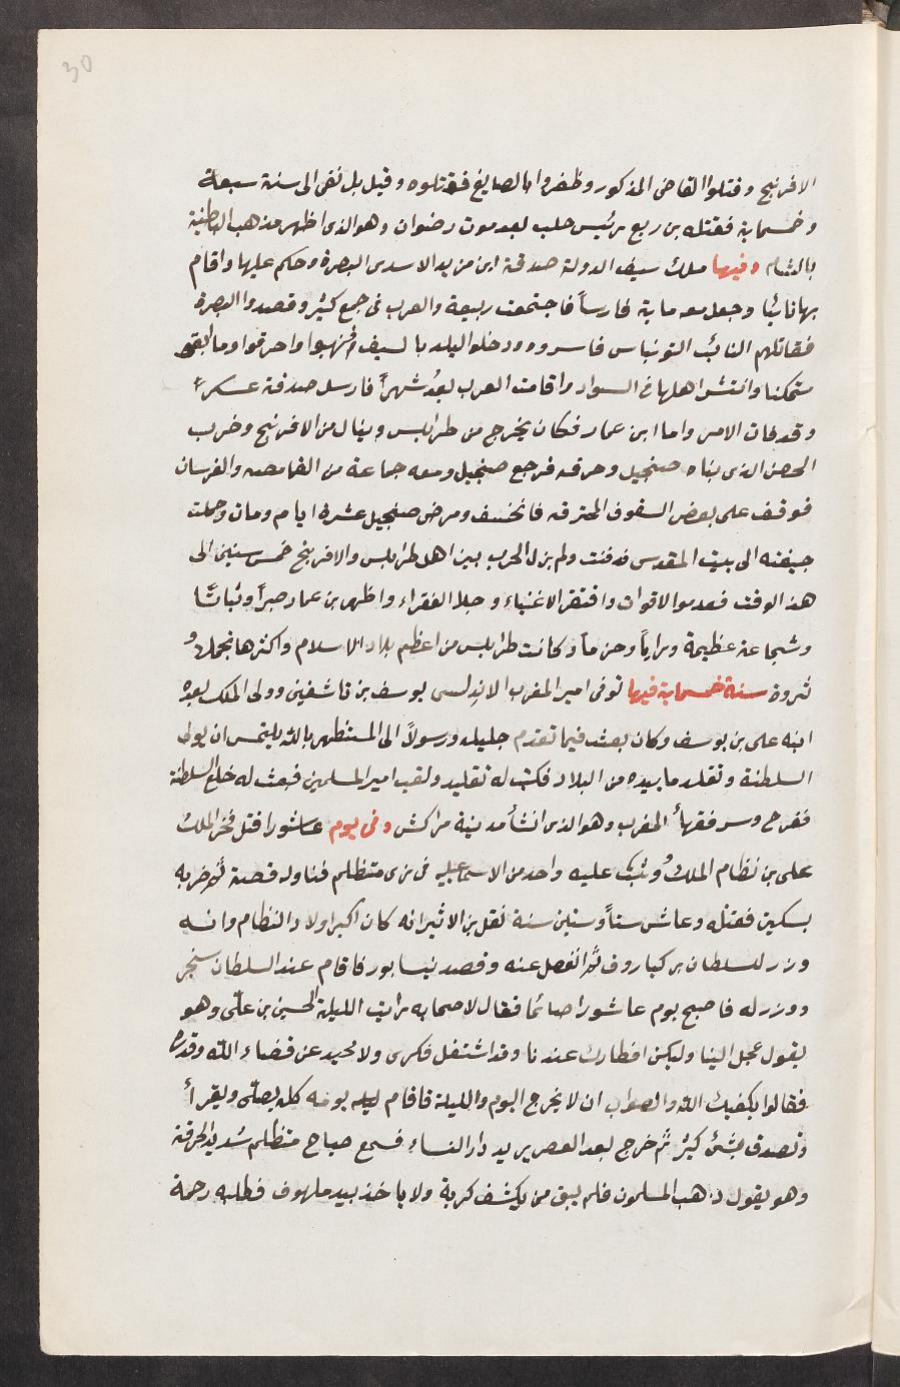 30
الافرنج وقتلوا القاضى المذكور وظفروا بالصايغ فقتلوه وقيل بل نفى الى سنة سبعة
وخمسماية فقتله بن ربع برئيس حلب بعد موت رضوان وهو الذى اظهر مذهب الباطنية
بالشام وفيها ملك سيف الدولة صدقة ابن مزيد الاسدى البصرة وحكم عليها واقام
بها نائبا وجعل معه ماية فارسا فاجتمعت ربيعة والعرب فى جمع كثير وقصدوا البصرة
فقاتلهم النائب التونباس فاسروه ودخلوا البلد بالسيف ونهبوا واحرقوا وما ابقى
ممكنا وانتشر اهلها فى السواد واقامت العرب بعد شهرا فارسل صدقة عسكرا
وقد فات الامر واما ابن عمار فكان يخرج من طرابلس وينال من الافرنج وخرب
الحصن الذى بناه صنجيل وحرقه فرجع صنجيل ومعه جماعة من القمامصه والفرسان
فوقف على بعض السقوف المحترقه فانخسف ومرض صنجيل عشرة ايام ومات وحملت
جيفته الى بيت المقدس فدفنت ولم يزل الحرب بين اهل طرابلس والافرنج خمس سنين الى
هذ الوقت فعدموا الاقوات وافتقر الاغنياء وجلا الفقراء واظهر بن عمار صبرا وثباتا
وشجاعة عظيمة ورايا وحزما وكانت طرابلس من اعظم بلاد الاسلام واكثرها تجملا و
ثروة سنة خمسماية فيها توفى امير المغرب الاندلسى يوسف بن تاشفين وولى الملك بعده
ابنه على بن يوسف وكان بعث فيما تقدم جليله ورسولا الى المستظهر بالله يلتمس ان يولى
السلطنة وتقلد ما بيده من البلاد فكتب له تقليد ولقب امير المسلمين فبعث له خلع السلطنة
ففرح وسر فقهاء المغرب وهو الذى انشأ مدينة مراكش وفى يوم عاشورا قتل فخر الملك
على بن نظام الملك وثب عليه واحد من الاسماعيليه فى زى متظلم فناوله قصة ثم ضربه
بسكين فقتله وعاش ستا وستين سنة نقل بن الاثير انه كان اكبر اولاد النظام وانه
وزر للسلطان بركياروف ثم انفصل عنه وقصد نيسابور فاقام عند السلطان سنجر
ووزر له فاصبح يوم عاشورا صائما فقال لاصحابه رايت الليلة الحسين بن على وهو
يقول عجل الينا وليكن افطارك عندنا وقد اشتغل فكرى ولا محيد عن قضاء الله وقدره
فقالوا يكفيك الله والصواب ان لا يخرج اليوم والليلة فاقام يومه كله يصلى ويقرأ
وتصدق بشئ كثير ثم خرج بعد العصر يريد دار النساء فسمع صياح متظلم شديد الحرقة
وهو يقول ذهب المسلمون فلم يبق من يكشف كربة ولا ياخذ بيد ملهوف فطلبه رحمة